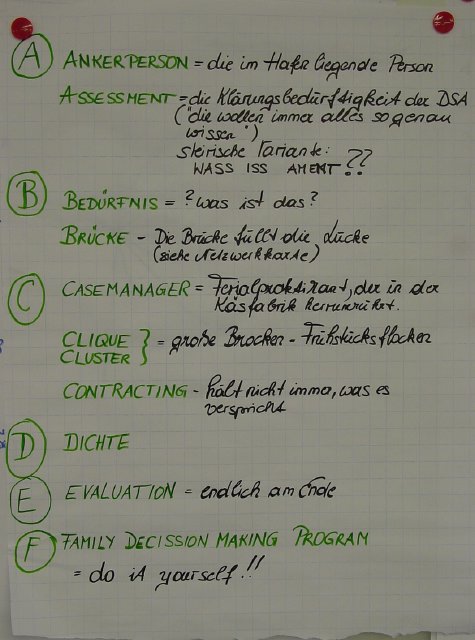 A ANKERPERSON = die im Hafen liegende Person
ASSESSMENT = die Klärungsbedürftigkeit der DSA
("die wollen immer alles so genau
wissen")
steirische Variante:
WASS ISS AMENT??
B BEDÜRFNIS = ? was ist das?
BRÜCKE - Die Brücke füllt die Lücke
(siehe Netzwerkkarte)
C CASEMANAGER = Ferialpraktikant, der in der
Käsfabrik herumrührt.
CLIQUE
CLUSTER } = große Brocken - Frühstücksflocken
CONTRACTING - hält nicht immer, was es
verspricht
D DICHTE
E EVALUATION = endlich am Ende
F FAMILY DECISSION MAKING PROGRAM
= do it yourself!!